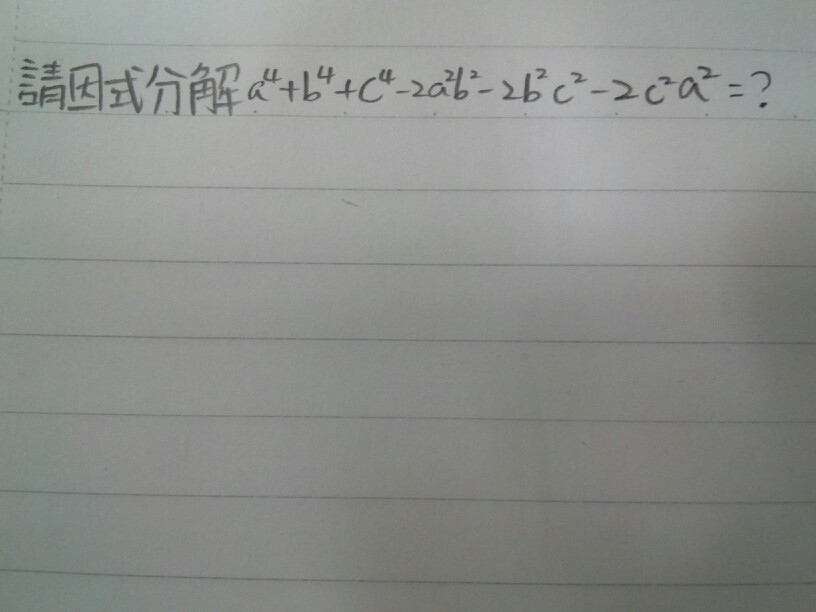 請因式分解 a⁴+b⁴+c⁴-2a²b²-2b²c²-2c²a²=?